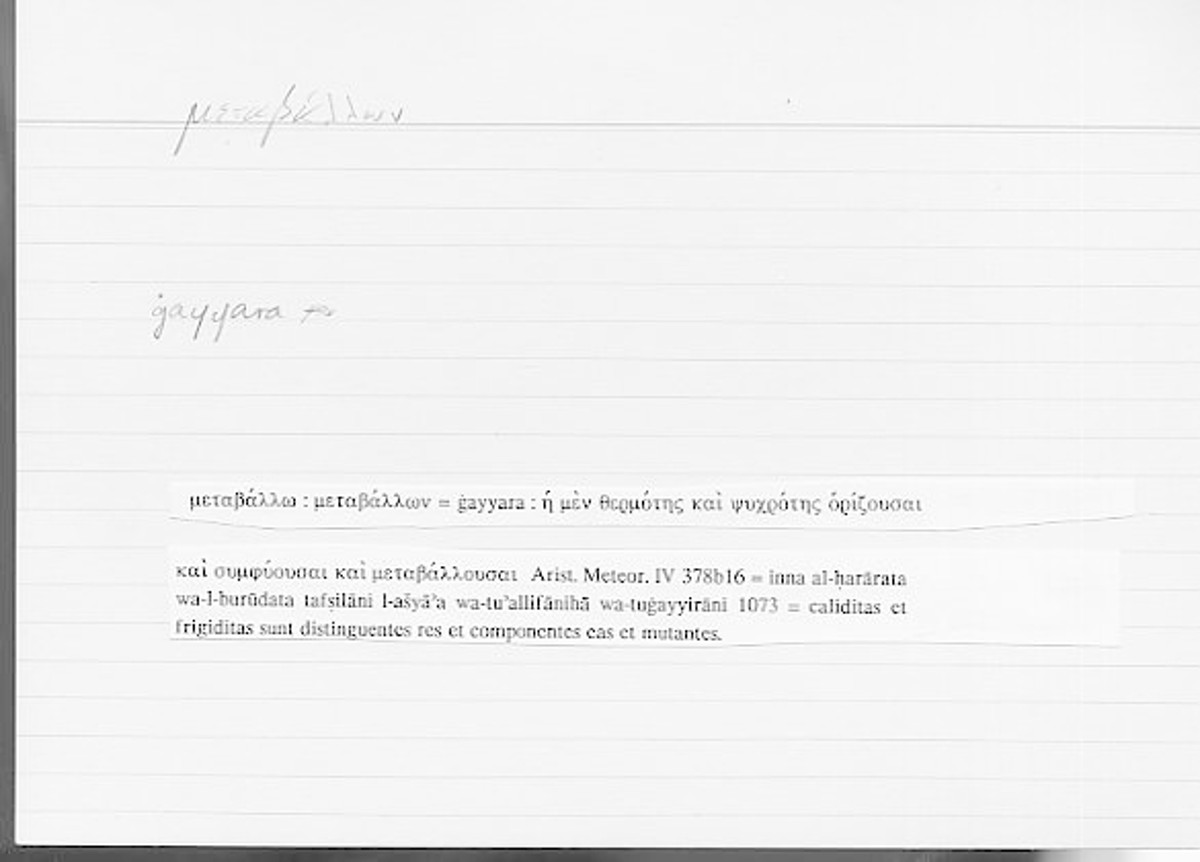 μεταβάλλων
ġayyara
μεταβάλλω : μεταβάλλων = ġayyara : ἡ μὲν θερμότης καὶ ψυχρότης ὁρίζουσαι
καὶ συμφύουσαι καὶ μεταβάλλουσαι Arist. Meteor. IV 378b16 = inna al-ḥarārata
wa-l-burūdata tafṣilāni l-ašyāʾa wa-tuʾallifānihā wa-tuġayyirāni 1073 = caliditas et
frigiditas sunt distinguentes res et componentes eas et mutantes.